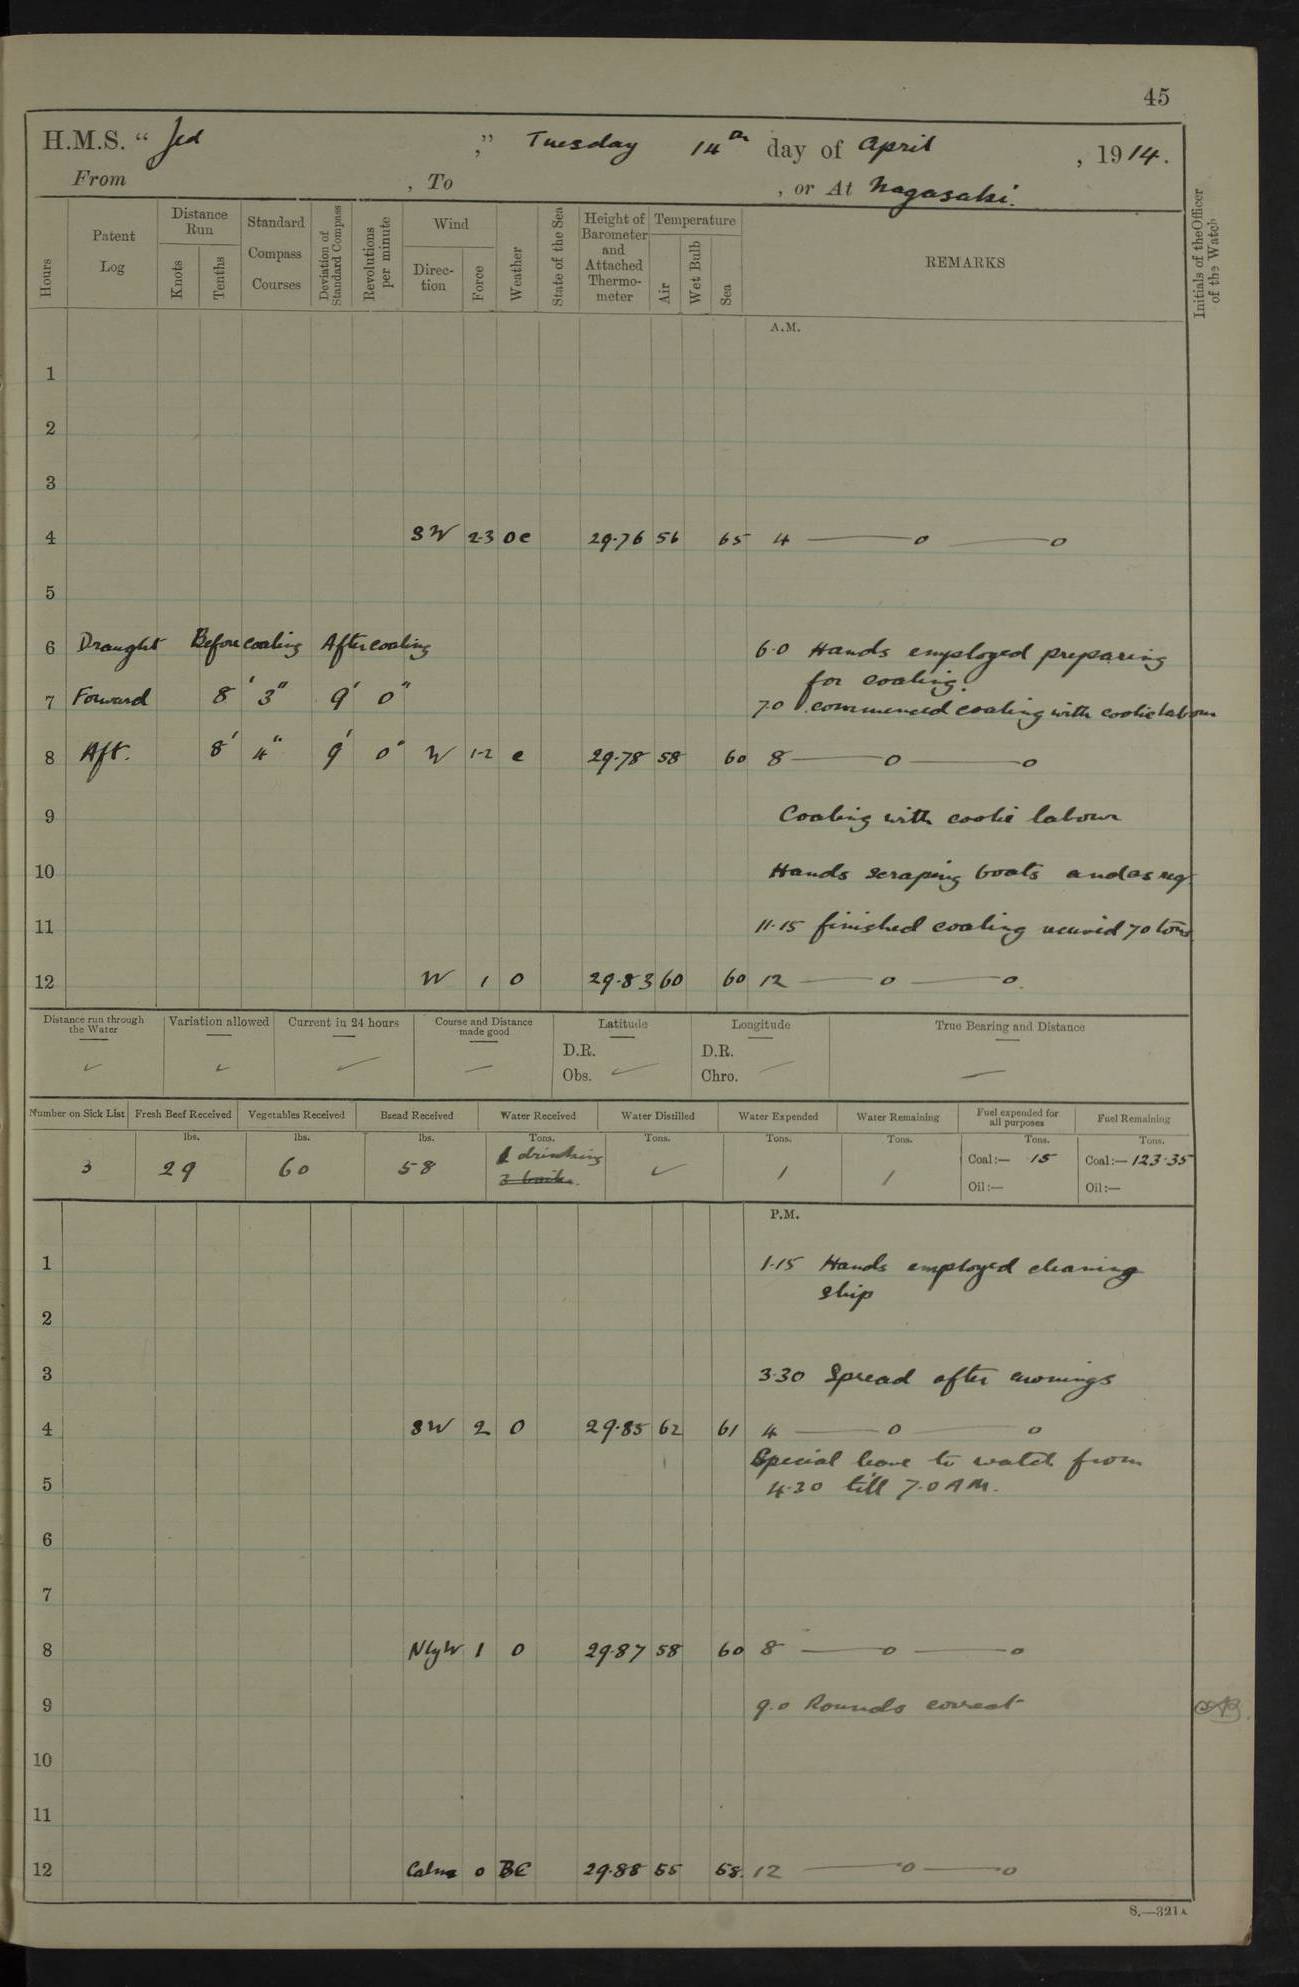 45
H.M.S. "Jed ," Tuesday 14th day of April , 1914.
From , To , or At Nagasaki.
Hours
Patent Log
Distance Run
Knots
Tenths
Standard Compass Courses
Deviation of Standard Compass
Revolutions per minute
Wind
Direction
Force
Weather
State of the Sea
Height of Barometer and Attached Thermometer
Temperature
Air
Wet Bulb
Sea
REMARKS
Initials of the Officer of the Watch
A.M.
1
2
3
4 SW 2.3 oc 29.76 56 65 4 —o —o
5
6 Draught Before coaling After coaling 6.0 Hands employed preparing
for coaling.
7 Forward 8' 3" 9' 0" 7.0 commenced coaling with coolie labour
8 Aft. 8' 4" 9' 0" W 1-2 c 29.78 58 60 8 —o —o
9 Coaling with coolie labour
10 Hands scraping boats and as req
11 11.15 finished coaling received 70 tons
12 W 1 0 29.83 60 60 12 —o —o
Distance run through the Water
Variation allowed
Current in 24 hours
Course and Distance made good
Latitude
D.R.
Obs.
Longitude
D.R.
Chro.
True Bearing and Distance
Number on Sick List Fresh Beef Received Vegetables Received Bread Received Water Received Water Distilled Water Expended Water Remaining Fuel expended for all purposes Fuel Remaining
lbs. lbs. lbs. Tons. Tons. Tons. Tons. Tons. Tons.
3 29 60 58 1 drinking 1 1 Coal:— 15 Coal:— 123.35
Oil:— Oil:—
P.M.
1 1.15 Hands employed cleaning
ship
2
3 3.30 Spread after awnings
4 SW 2 0 29.85 62 61 4 —o —o
Special leave to watch from
5 4.30 till 7.0 AM.
6
7
8 NlyW 1 0 29.87 58 60 8 —o —o
9 9.0 Rounds correct
10
11
12 Calm 0 BC 29.88 55 58. 12 —o —o
S.—321A